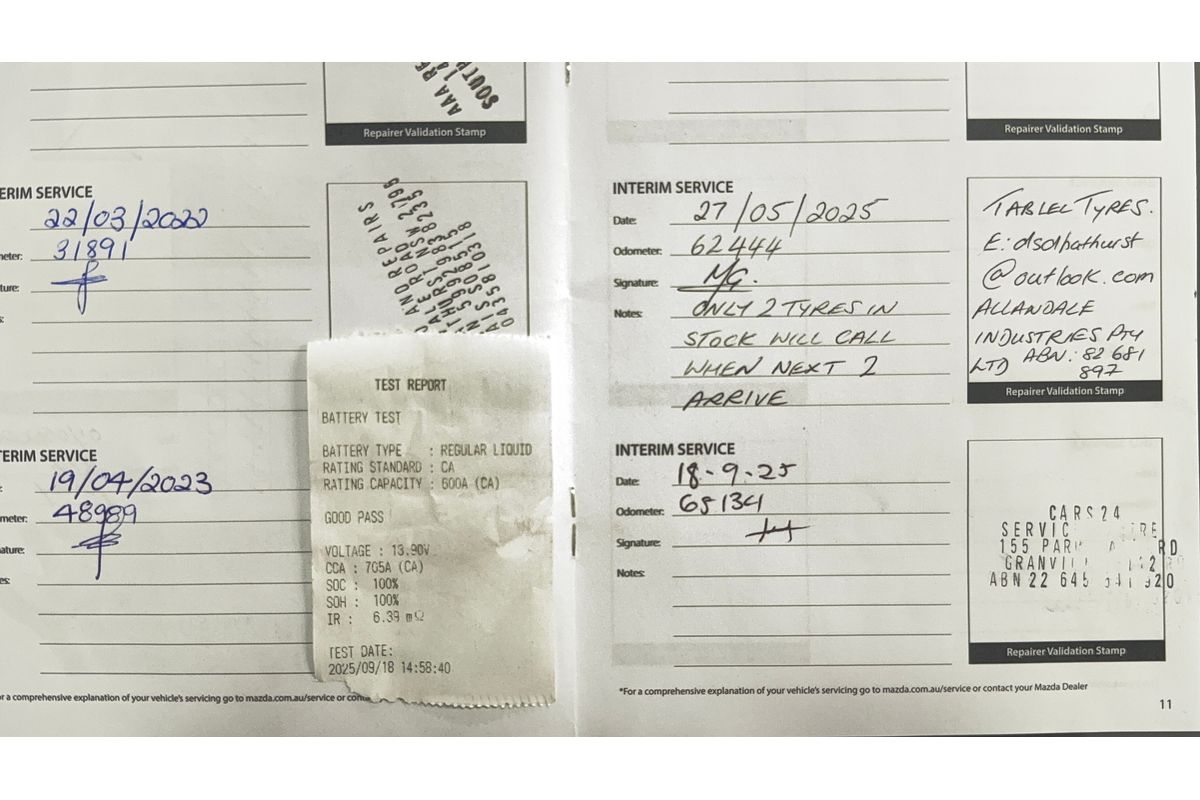 AAA RE
SOUTH
Repairer Validation Stamp
ERIM SERVICE
22/03/2022
meter: 31891
ture:
s:
TERIM SERVICE
19/04/2023
meter: 48989
ature:
es:
TEST REPORT
BATTERY TEST
BATTERY TYPE : REGULAR LIQUID
RATING STANDARD : CA
RATING CAPACITY : 600A (CA)
GOOD PASS
VOLTAGE : 13.90V
CCA : 705A (CA)
SOC : 100%
SOH : 100%
IR : 6.39 mΩ
TEST DATE:
2025/09/18 14:58:40
or a comprehensive explanation of your vehicle's servicing go to mazda.com.au/service or conta
Repairer Validation Stamp
INTERIM SERVICE
Date: 27/05/2025
Odometer: 62444
Signature: MG.
Notes: ONLY 2 TYRES IN
STOCK WILL CALL
WHEN NEXT 2
ARRIVE
TABLEL TYRES.
E: dsdbathurst
@outlook.com
ALLANDALE
INDUSTRIES Pty
LTD ABN: 82 681
897
Repairer Validation Stamp
INTERIM SERVICE
Date: 18-9-25
Odometer: 65134
Signature:
Notes:
CARS24
SERVIC
155
GRANV
ABN 22 645
Repairer Validation Stamp
*For a comprehensive explanation of your vehicle's servicing go to mazda.com.au/service or contact your Mazda Dealer
11